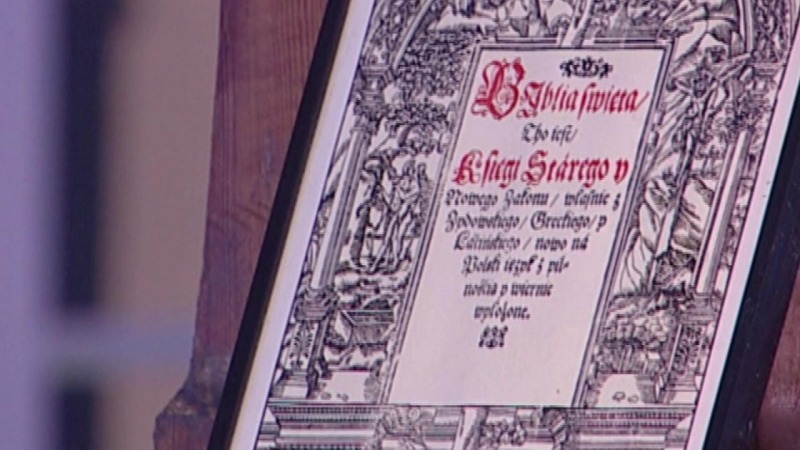 Biblia swięta/
Tho iest/
Księgi Stárego y
Nowego Zakonu/ własnie z
Zydowskiego/ Greckiego/ y
Láćińskiego/ nowo ná
Polski ięzyk z pil-
nośćią y wiernie
wyłożone.